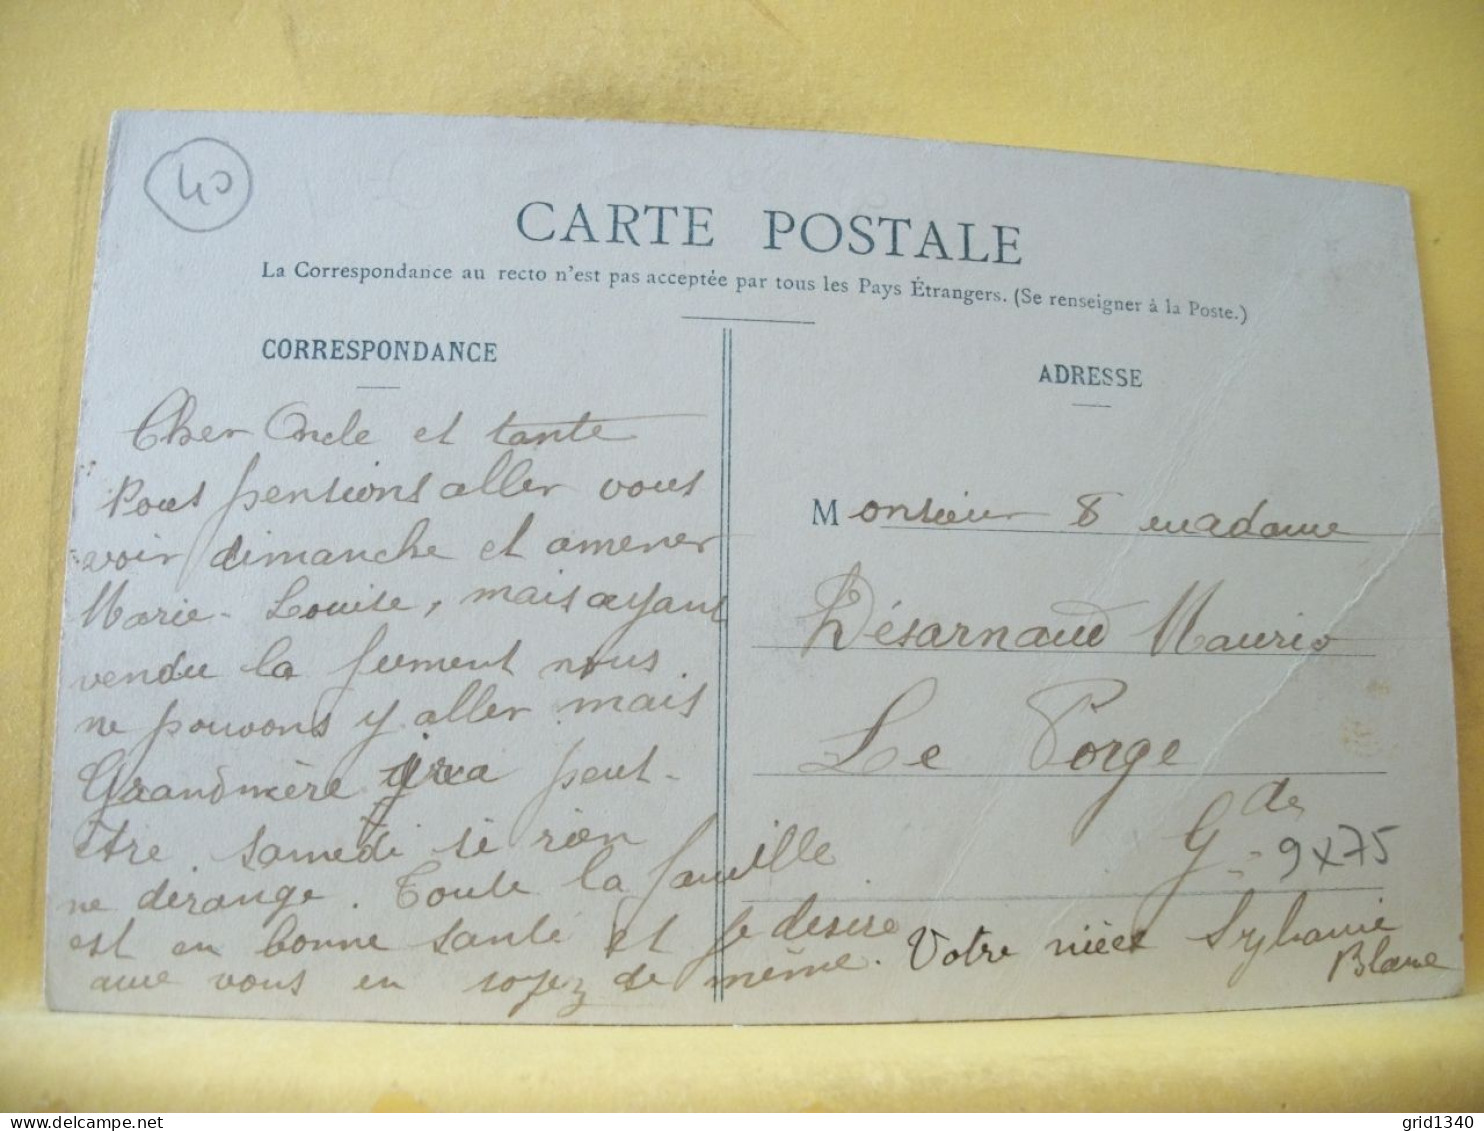 40
CARTE POSTALE
La Correspondance au recto n'est pas acceptée par tous les Pays Étrangers. (Se renseigner à la Poste.)
CORRESPONDANCE
Cher Oncle et tante
Nous pensions aller vous
voir dimanche et amener
Marie-Louise, mais ayant
vendu la jument nous
ne pouvons y aller mais
Grandmère ira peut-
être samedi si rien
ne dérange. Toute la famille
est en bonne santé et je désire
que vous en soyez de même. Votre nièce Sylvanie
Blanc
ADRESSE
Monsieur & madame
Désarnaud Maurice
Le Porge
Gde
9x75
grid1340